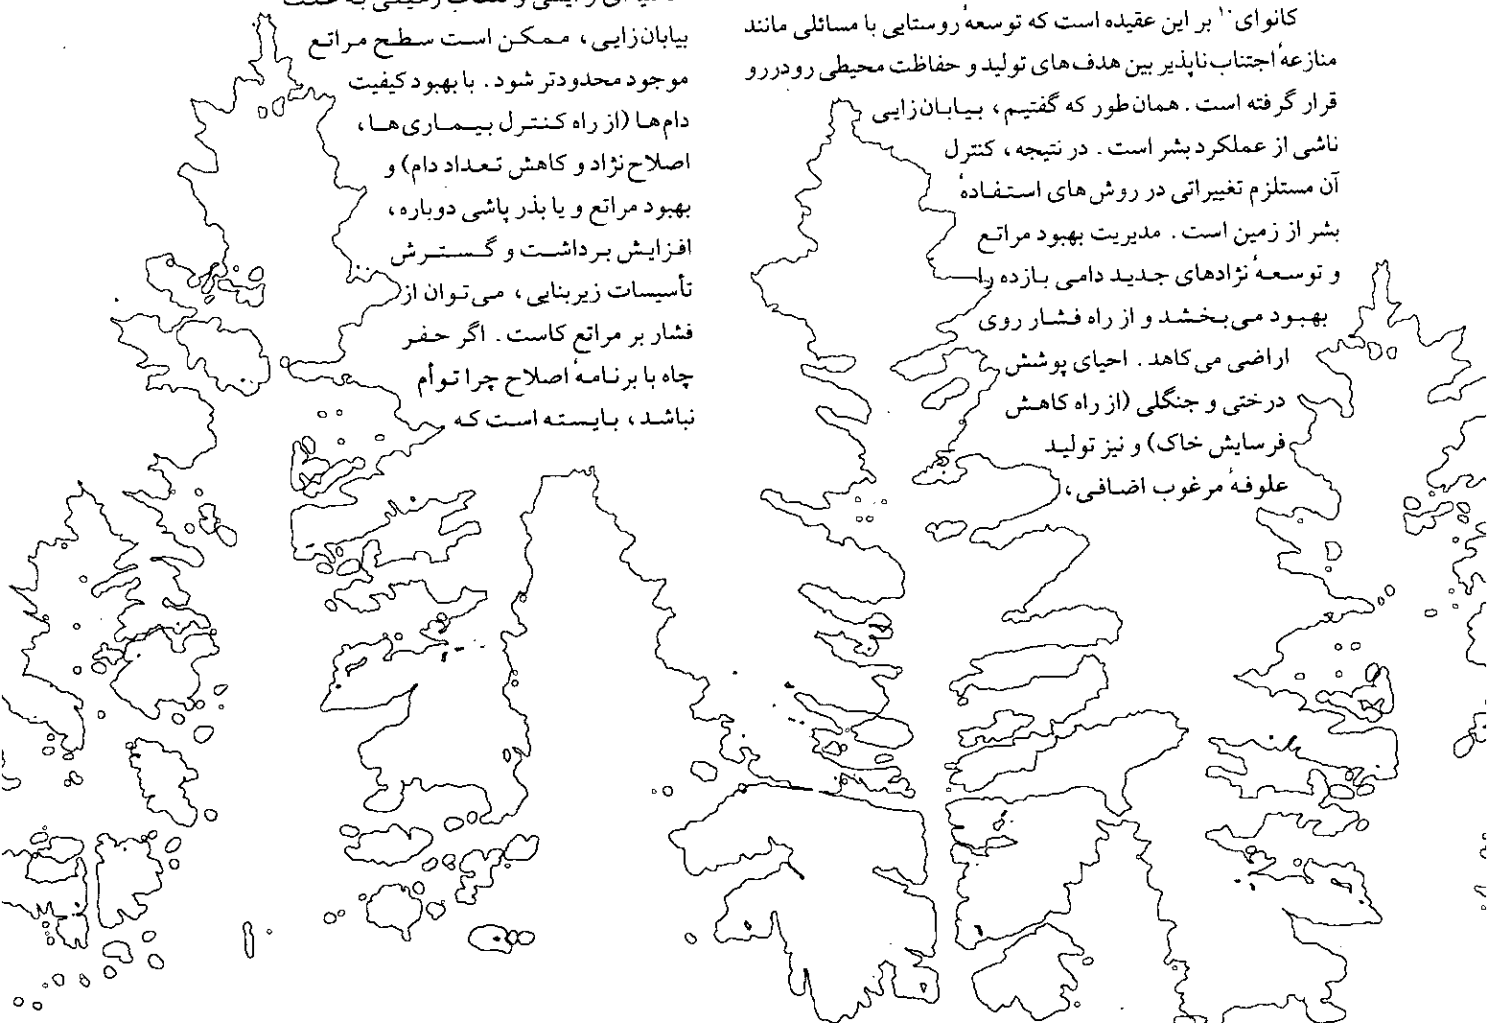 کانوای۱۰ بر این عقیده است که توسعهٔ روستایی با مسائلی مانند
منازعهٔ اجتناب‌ناپذیر بین هدف‌های تولید و حفاظت محیطی رودررو
قرار گرفته است. همان‌طور که گفتیم، بیابان‌زایی
ناشی از عملکرد بشر است. در نتیجه، کنترل
آن مستلزم تغییراتی در روش‌های استفادهٔ
بشر از زمین است. مدیریت بهبود مراتع
و توسعهٔ نژادهای جدید دامی بازده را
بهبود می‌بخشد و از راه فشار روی
اراضی می‌کاهد. احیای پوشش
درختی و جنگلی (از راه کاهش
فرسایش خاک) و نیز تولید
علوفهٔ مرغوب اضافی،
بیابان‌زایی، ممکن است سطح مراتع
موجود محدودتر شود. با بهبود کیفیت
دام‌ها (از راه کنترل بیماری‌ها،
اصلاح نژاد و کاهش تعداد دام) و
بهبود مراتع و یا بذر پاشی دوباره،
افزایش برداشت و گسترش
تأسیسات زیربنایی، می‌توان از
فشار بر مراتع کاست. اگر حفر
چاه با برنامهٔ اصلاح چرا توأم
نباشد، بایسته است که